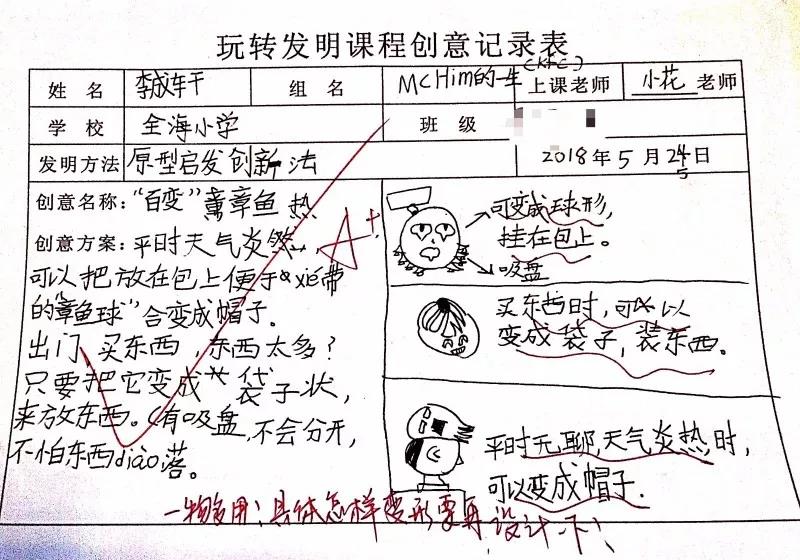 玩转发明课程创意记录表
姓 名 李成轩 组 名 MC Him的一生 (KFC) 上课老师 小花 老师
学 校 全海小学 班 级
发明方法 原型启发创新法 2018年5月24日
5
创意名称:"百变"章鱼 热
创意方案:平时天气炎
可以把放在包上便于 xié带
的"章鱼球"合变成帽子。
出门,买东西,东西太多?
只要把它变成 袋子状,
来放东西。(有吸盘,不会分开,
不怕东西diào落。
A+
可变成球形,
挂在包上。
吸盘
买东西时,可以
变成袋子,装东西。
平时无聊,天气炎热,时,
可以变成帽子.
一物多用;具体怎样变形要再设计一下!